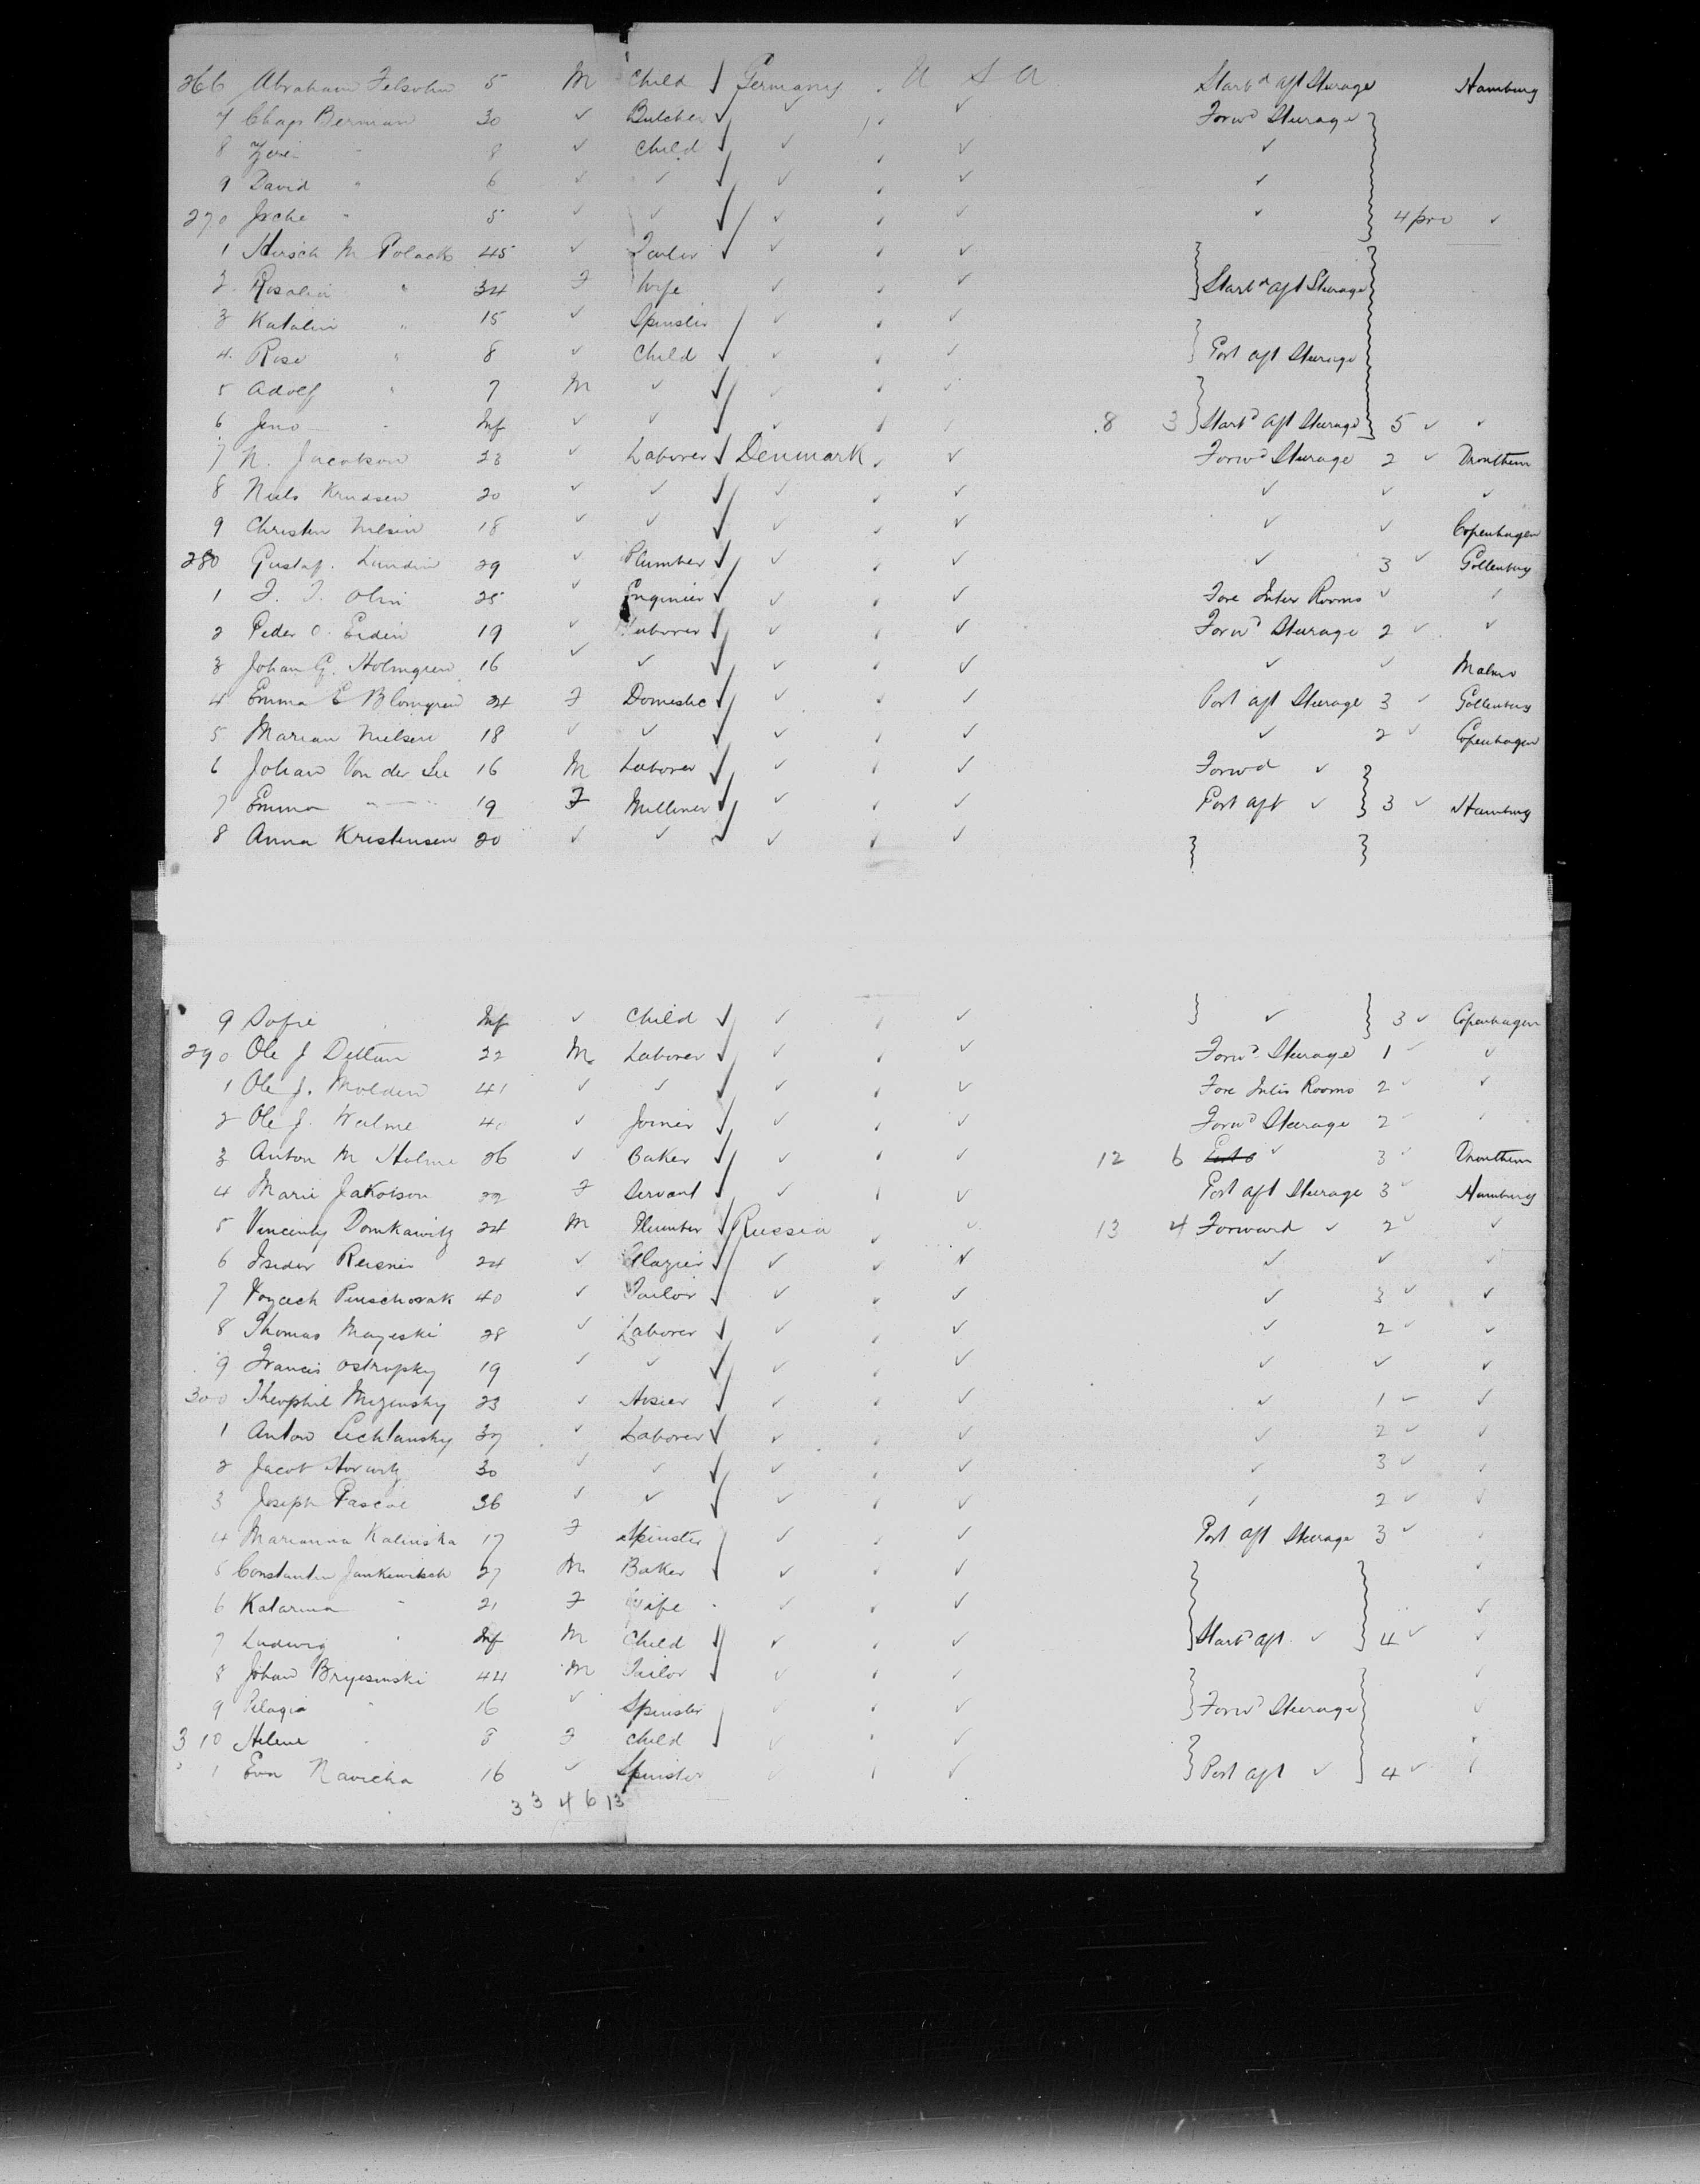 266 Abraham Felsohn 5 M Child Germany U S A Starbd aft Steerage Hamburg
7 Chaps Berman 30 ✓ Butcher ✓ ✓ Forwd Steerage
8 " 8 ✓ Child ✓ ✓ ✓
9 David " 6 ✓ ✓ ✓ ✓ ✓
270 Joche " 5 ✓ ✓ ✓ ✓ ✓ 4 pro ✓
1 Hersch M Polack 45 ✓ Tailor ✓ ✓
2 Rosalin " 34 F Wife ✓ ✓ Starbd aft Steerage
3 Katalin " 15 ✓ Spinster ✓ ✓
4 Rosi " 8 ✓ Child ✓ ✓ Port aft Steerage
5 Adolf " 7 M ✓ ✓ ✓
6 Jeno " Inf ✓ ✓ ✓ ✓ 8 3 Starbd aft Steerage 5 ✓ ✓
7 N. Jacobson 23 ✓ Laborer Denmark ✓ Forwd Steerage 2 ✓ Drontheim
8 Niels Knudsen 20 ✓ ✓ ✓ ✓ ✓ ✓ ✓
9 Christen Nielsin 18 ✓ ✓ ✓ ✓ ✓ ✓ Copenhagen
280 Gustaf. Lundin 29 ✓ Plumber ✓ ✓ ✓ 3 ✓ Gottenburg
1 J. T. Olin 25 ✓ Enginier ✓ ✓ Fore Inter Rooms ✓ ✓
2 Peder O. Erdin 19 ✓ Laborer ✓ ✓ Forwd Steerage 2 ✓ ✓
3 Johan G. Holmgren 16 ✓ ✓ ✓ ✓ ✓ ✓ Malmo
4 Emma E Blomgren 24 F Domestic ✓ ✓ Port aft Steerage 3 ✓ Gottenburg
5 Marian Nielsen 18 ✓ ✓ ✓ ✓ ✓ 2 ✓ Copenhagen
6 Johan Von der See 16 M Laborer ✓ ✓ Forwd ✓
7 Emma " " 19 F Milliner ✓ ✓ Port aft ✓ 3 ✓ Hamburg
8 Anna Kristensen 20 ✓ ✓ ✓ ✓
9 Sofie Inf ✓ Child ✓ ✓ ✓ 3 ✓ Copenhagen
290 Ole J Dettun 22 M Laborer ✓ ✓ Forwd Steerage 1 ✓ ✓
1 Ole J. Molden 41 ✓ ✓ ✓ ✓ Fore Inter Rooms 2 ✓ ✓
2 Ole J. Walme 40 ✓ Joiner ✓ ✓ Forwd Steerage 2 ✓ ✓
3 Anton M Holme 26 ✓ Baker ✓ ✓ 12 6 ✓ 3 ✓ Drontheim
4 Marie Jakobson 22 F Servant ✓ ✓ Port aft Steerage 3 ✓ Hamburg
5 Vincenty Domkawitz 24 M Plumber Russia ✓ 13 4 Forward ✓ 2 ✓ ✓
6 Isidor Reisner 24 ✓ Glazier ✓ ✓ ✓ ✓ ✓
7 Voycech Pinschorak 40 ✓ Tailor ✓ ✓ ✓ 3 ✓ ✓
8 Thomas Mazeski 28 ✓ Laborer ✓ ✓ ✓ 2 ✓ ✓
9 Francis Ostropsky 19 ✓ ✓ ✓ ✓ ✓ ✓ ✓
300 Theophil Mizensky 23 ✓ Hosier ✓ ✓ ✓ 1 ✓ ✓
1 Anton Lechtansky 37 ✓ Laborer ✓ ✓ ✓ 2 ✓ ✓
2 Jacob Horwitz 30 ✓ ✓ ✓ ✓ ✓ 3 ✓ ✓
3 Joseph Pascal 36 ✓ ✓ ✓ ✓ ✓ 2 ✓ ✓
4 Marianna Kalinska 17 F Spinster ✓ ✓ Port aft Steerage 3 ✓
5 Constantin Jankewitsch 27 M Baker ✓ ✓ ✓
6 Katarina " 21 F Wife ✓ ✓ ✓
7 Ludwig " Inf M Child ✓ ✓ Starbd aft ✓ 4 ✓ ✓
8 Johan Bryesinski 44 M Tailor ✓ ✓ ✓
9 Pelagia " 16 ✓ Spinster ✓ ✓ Forwd Steerage ✓
310 Helene " 8 F Child ✓ ✓
1 Eva Navicka 16 ✓ Spinster ✓ ✓ Port aft ✓ 4 ✓
3 3 4 6 13